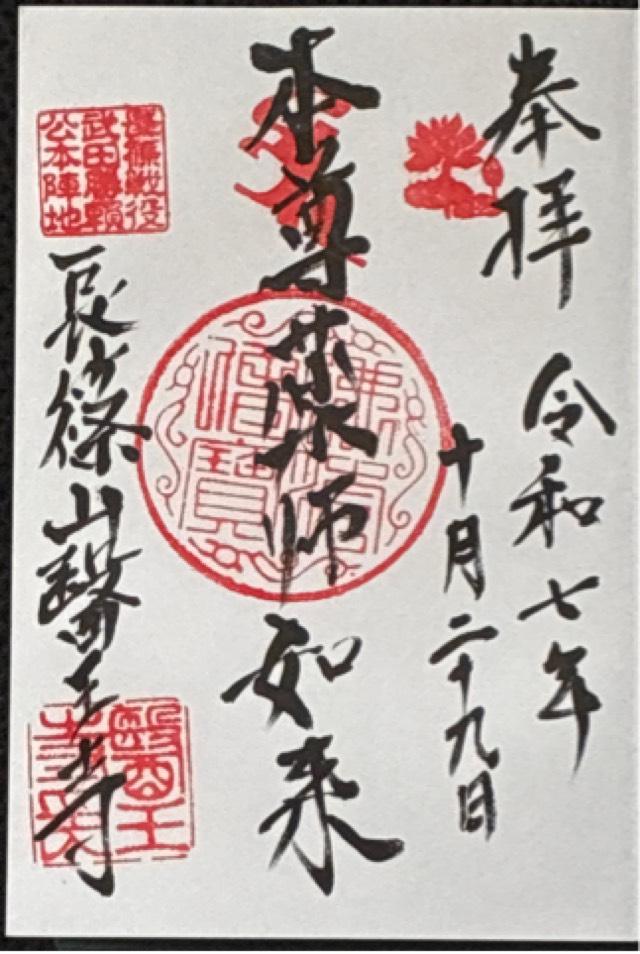 奉拝
令和七年
十月二十九日
本尊薬師如来
佛法僧寶
長篠戦役
武田勝頼
公本陣地
長篠山醫王寺
醫王